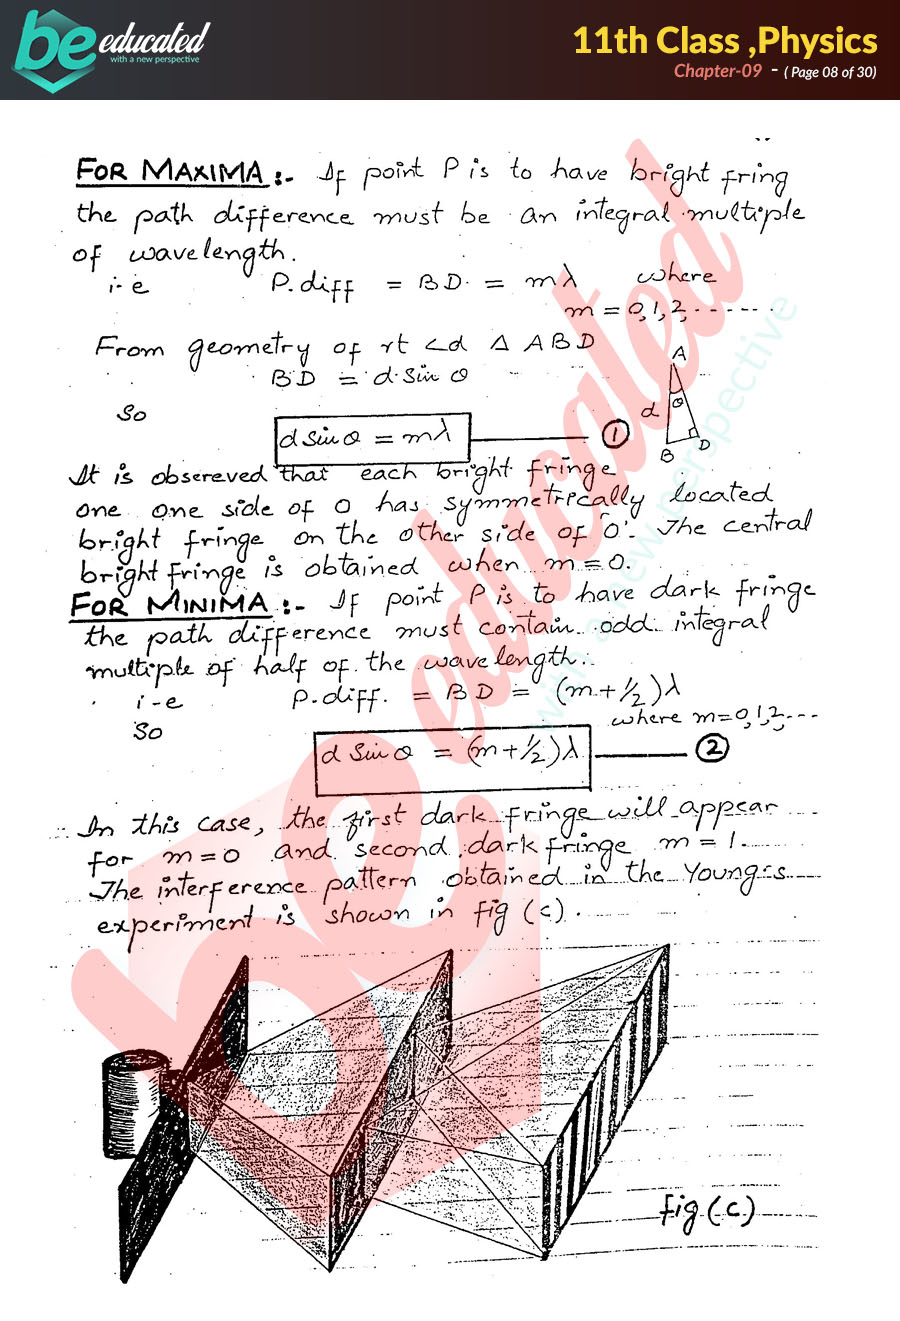 be educated
with a new perspective
11th Class ,Physics
Chapter-09 - ( Page 08 of 30)
FOR MAXIMA :- If point P is to have bright fring
the path difference must be an integral multiple
of wavelength.
i-e P.diff = BD = mλ where
m = 0,1,2,------
From geometry of rt <d Δ ABD
BD = d Sin θ
So
d sin θ = mλ ①
A
θ
d
B D
It is obsereved that each bright fringe
one one side of O has symmetrically located
bright fringe on the other side of 'O'. The central
bright fringe is obtained when m = 0.
FOR MINIMA :- If point P is to have dark fringe
the path difference must contain odd integral
multiple of half of the wavelength.
i-e P.diff. = BD = (m+1/2)λ
where m=0,1,2,---
So
d Sin θ = (m+1/2)λ ②
In this case, the first dark fringe will appear
for m=0 and second dark fringe m = 1.
The interference pattern obtained in the Young's
experiment is shown in fig (c).
fig (c)
be educated
with a new perspective